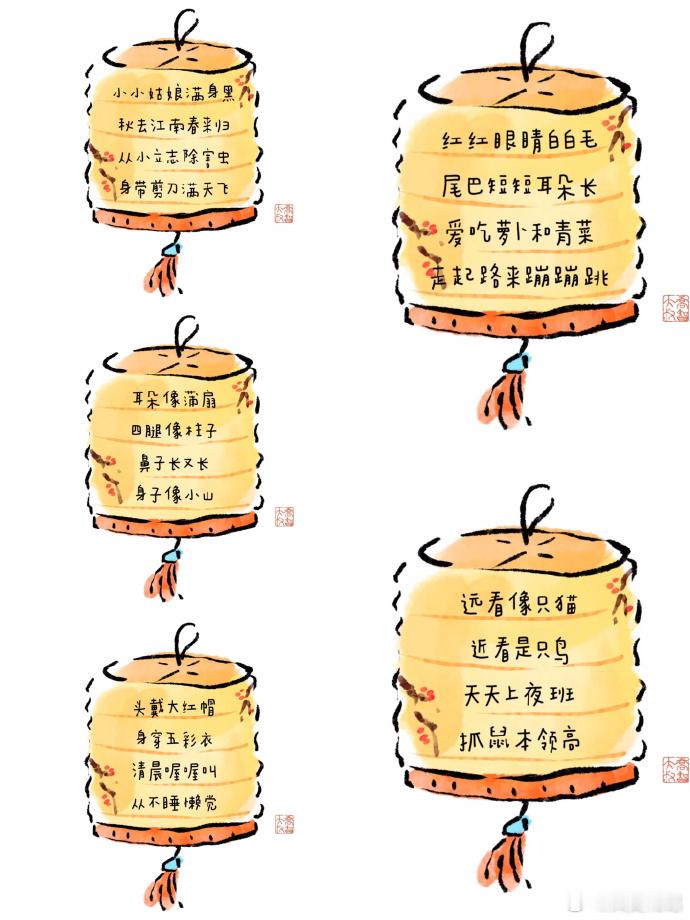 小小姑娘满身黑
秋去江南春来归
从小立志除害虫
身带剪刀满天飞
耳朵像蒲扇
四腿像柱子
鼻子长又长
身子像小山
头戴大红帽
身穿五彩衣
清晨喔喔叫
从不睡懒觉
红红眼睛白白毛
尾巴短短耳朵长
爱吃萝卜和青菜
走起路来蹦蹦跳
远看像只猫
近看是只鸟
天天上夜班
抓鼠本领高